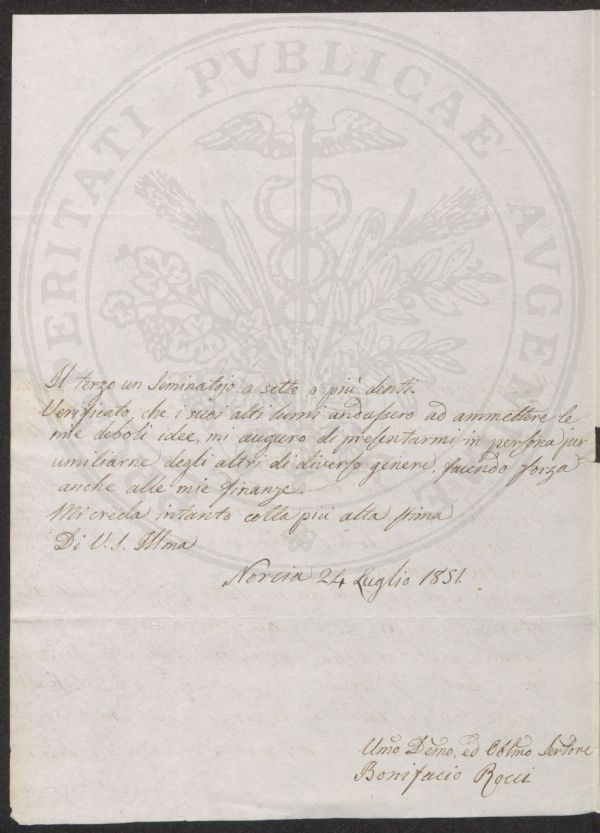 PROSPERITATI PVBLICAE AVGENDAE
Il terzo un Seminatojo a sette o più denti.
Verificato, che i suoi alti lumi andassero ad ammettere le
mie deboli idee, mi auguro di presentarmi in persona per
umiliarne degli altri di diverso genere, facendo forza
anche alle mie finanze.
Mi creda intanto colla più alta stima
Di V. S. Illma
Norcia 24 Luglio 1851.
Umo Demo, ed Obbmo Servore
Bonifacio Rocci